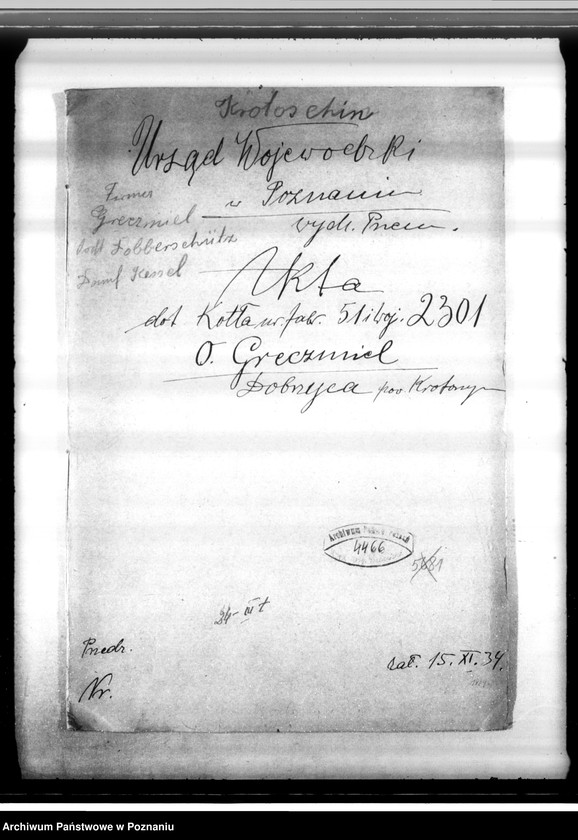 Krotoschin
Urząd Wojewódzki
w Poznaniu
wydz. Przem.
Farmer
Greczmiel
Dobberschütz
Dampf Kessel
Akta
dot Kotła nr. fabr. 51 i woj. 2301
O. Greczmiel
Dobrzyca pow Krotoszyn
4466
24-III t
Przedr.
Nr.
zał. 15.XI.34.
Archiwum Państwowe w Poznaniu